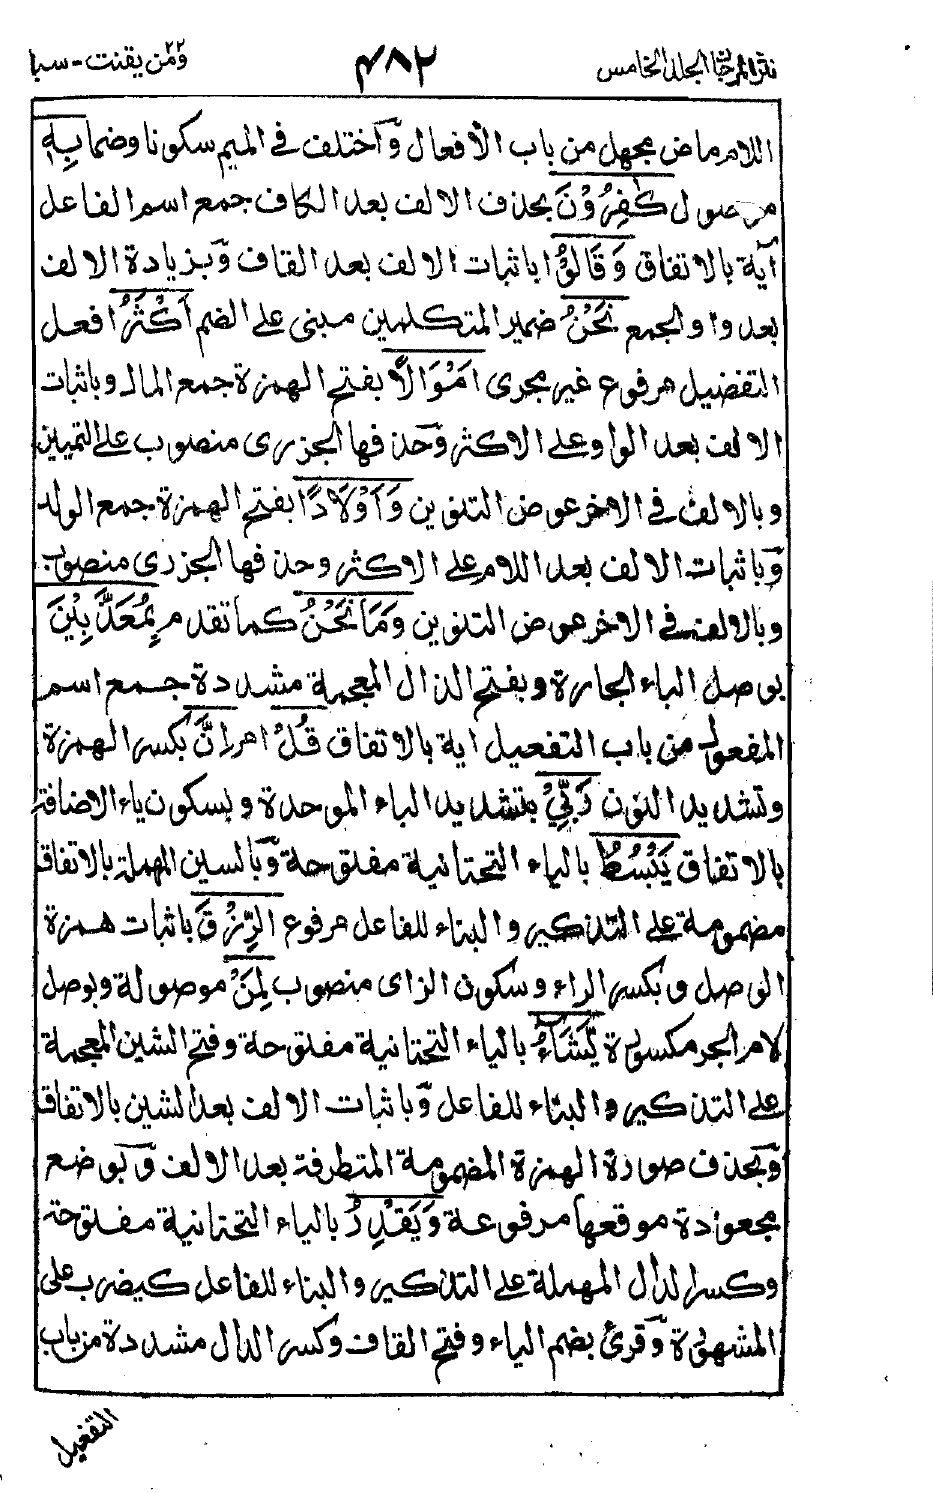 نثر المرجان المجلد الخامس
٤٨٢
ومن يقنت ٢٢ - سبا
اللام ماض مجهل من باب الأفعال وٓاختلف فى الميم سكونا وضما بِهٖ
موصول كٰفِرُوْنَ بحذف الالف بعد الكاف جمع اسم الفاعل
اٰية بالاتفاق وَقَالُوْا باثبات الالف بعد القاف وٓبزيادة الالف
بعد واو الجمع نَحْنُ ضمير المتكلمين مبنى على الضم اَكْثَرُ افعل
التفضيل مرفوع غير مجرى اَمْوَالًا بفتح الهمزة جمع المال وباثبات
الالف بعد الواو على الاكثر وٓحذفها الجزرى منصوب على التمييز
وبالالف فى الاخر عوض التنوين وَاَوْلَادًا بفتح الهمزة جمع الولد
وٓباثبات الالف بعد اللام على الاكثر وحذفها الجزرى منصوب
وبالالف فى الاخر عوض التنوين وَمَا نَحْنُ كما تقدم بِمُعَذَّبِيْنَ
بوصل الباء الجارة وبفتح الذال المعجمة مشددة جمع اسم
المفعول من باب التفعيل اية بالاتفاق قُلْ امر اِنَّ بكسر الهمزة
وتشديد النون رَبِّيْ بتشديد الباء الموحدة وبسكون ياء الاضافة
بالاتفاق يَبْسُطُ بالياء التحتانية مفتوحة وٓبالسين المهملة بالاتفاق
مضمومة على التذكير والبناء للفاعل مرفوع الرِّزْقَ باثبات همزة
الوصل وبكسر الراء وسكون الزاى منصوب لِمَنْ موصولة وبوصل
لام الجر مكسورة يَّشَآءُ بالياء التحتانية مفتوحة وفتح الشين المعجمة
على التذكير والبناء للفاعل وٓباثبات الالف بعد الشين بالاتفاق
وٓبحذف صورة الهمزة المضمومة المتطرفة بعد الالف وٓبوضع
مجعودة موقعها مرفوعة وَيَقْدِرُ بالياء التحتانية مفتوحة
وكسر الدال المهملة على التذكير والبناء للفاعل كيضرب على
المشهورة وٓقرئ بضم الياء وفتح القاف وكسر الدال مشددة من باب
التفعيل